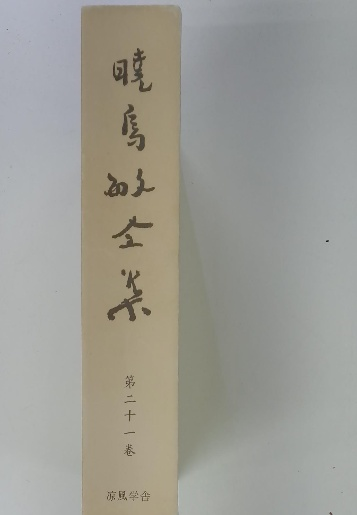 暁烏敏全集
第二十一巻
涼風学舎